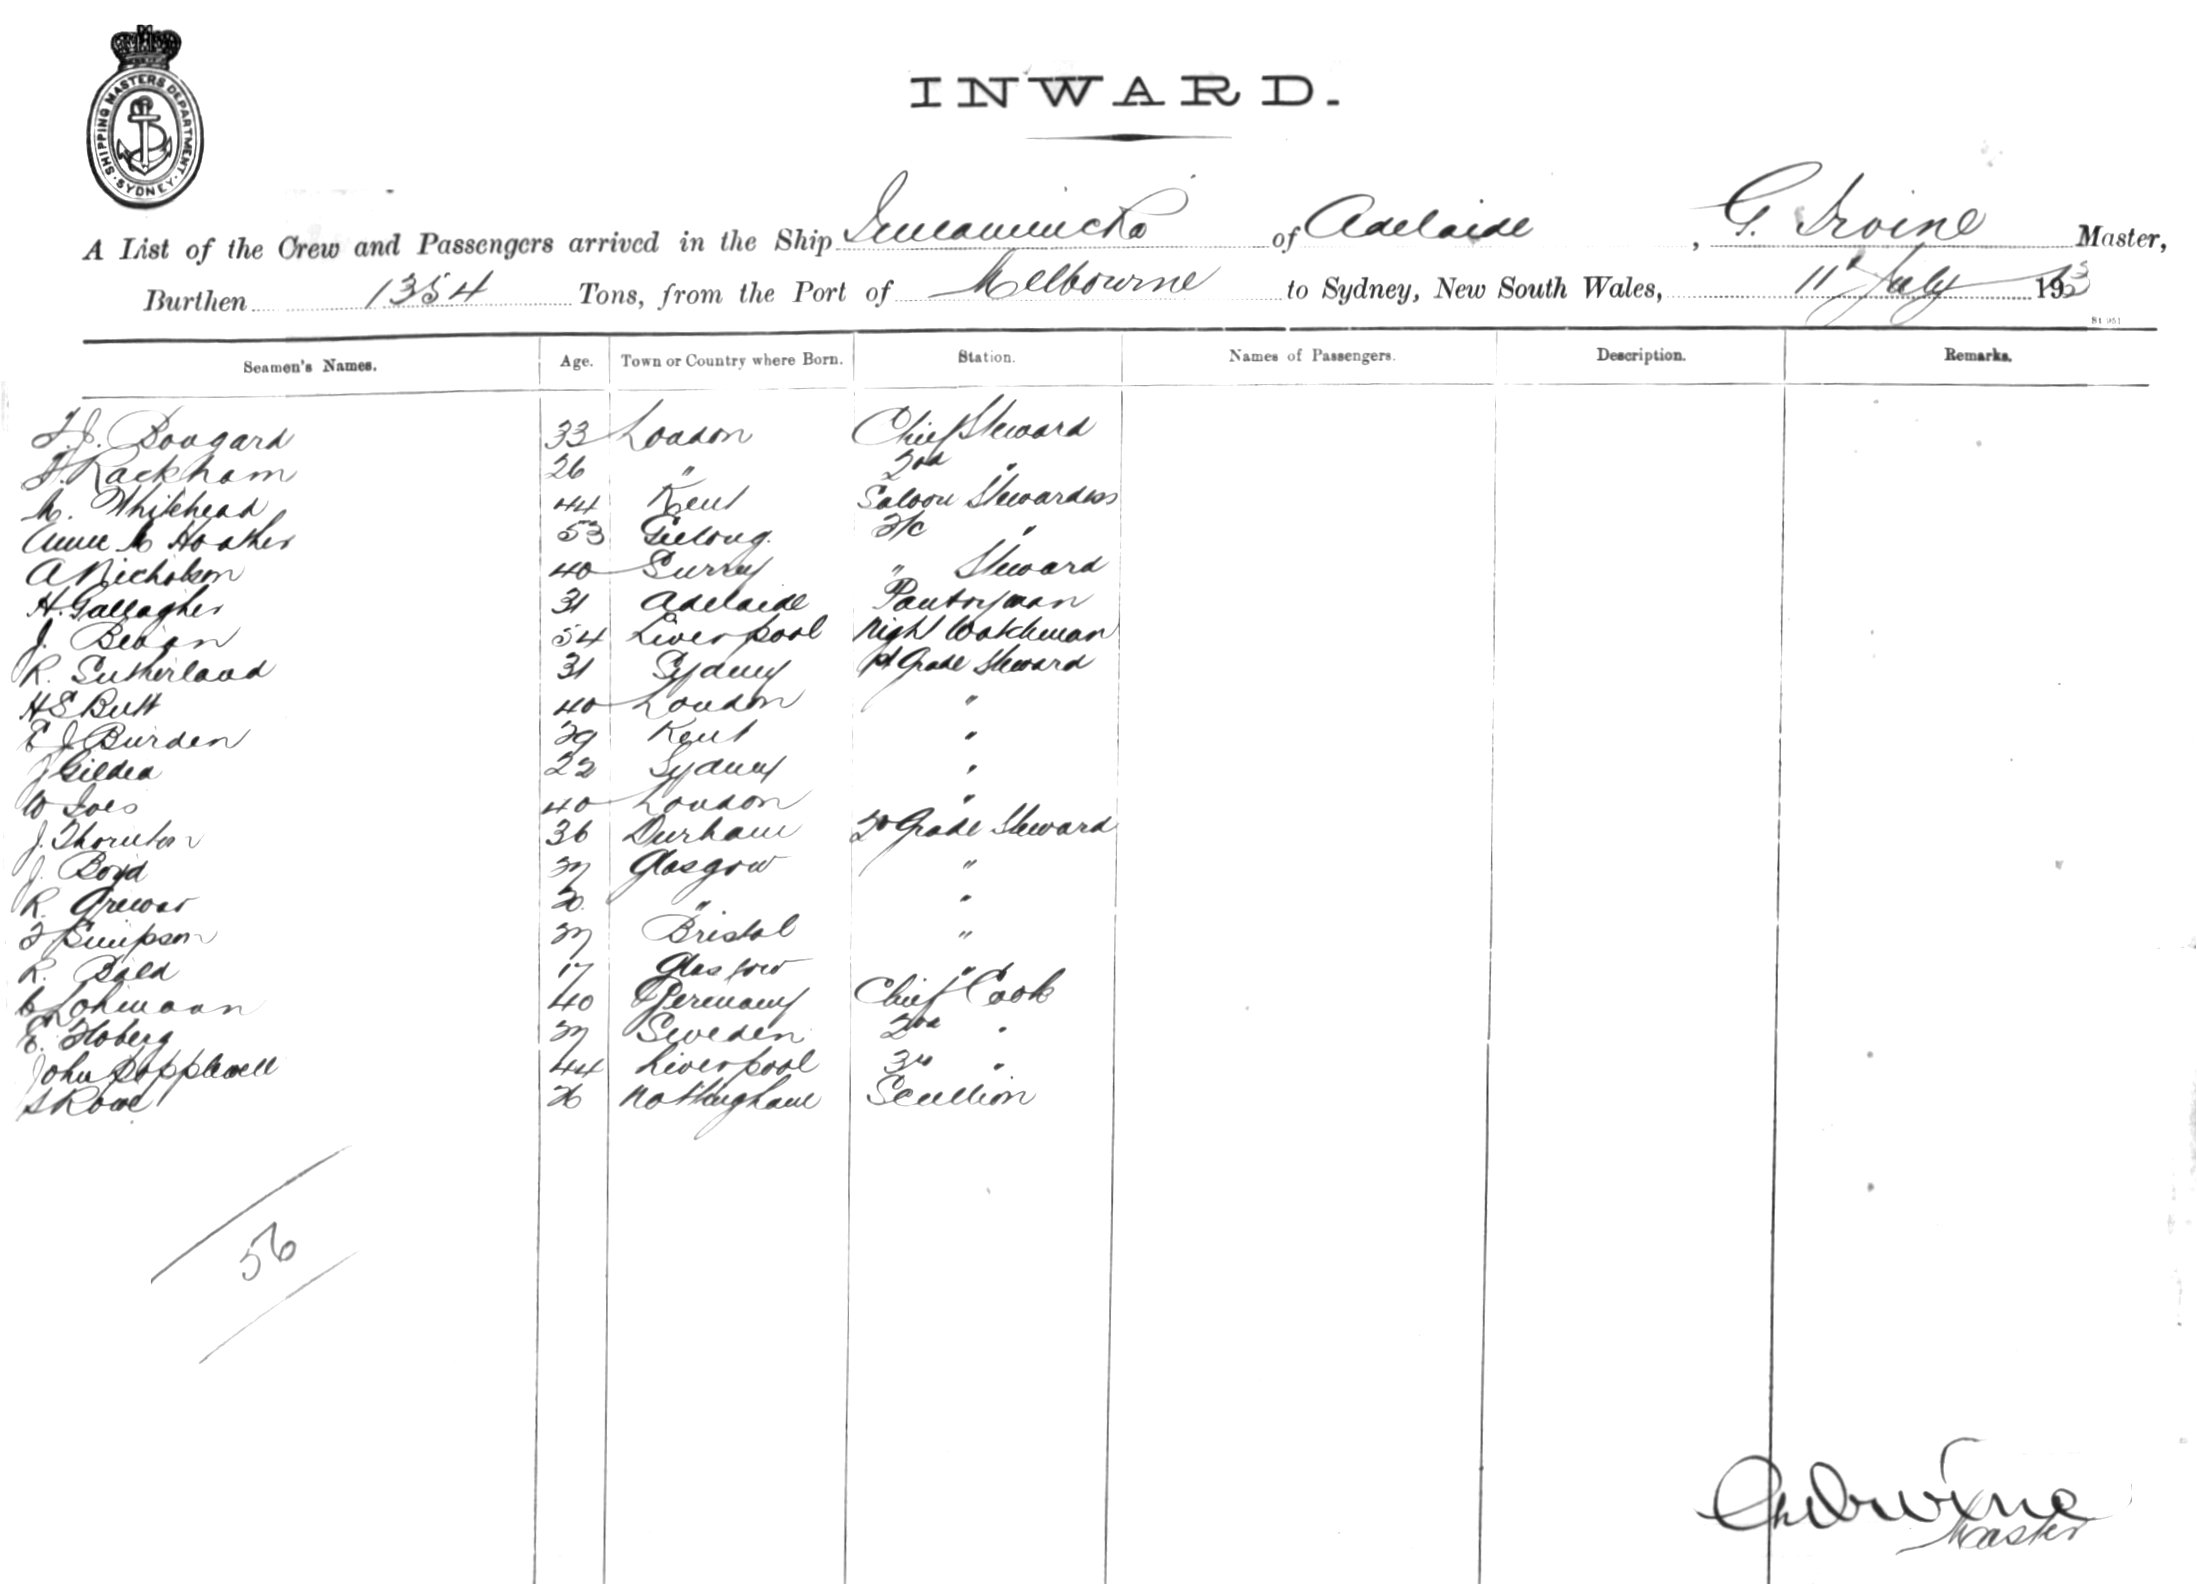 SHIPPING MASTERS DEPARTMENT. SYDNEY
INWARD.
A List of the Crew and Passengers arrived in the Ship Innamincka of Adelaide, G. Irvine Master,
Burthen 1354 Tons, from the Port of Melbourne to Sydney, New South Wales, 11 July 19
Seamen's Names. Age. Town or Country where Born. Station. Names of Passengers. Description. Remarks.
Bougard 33 London Chief Steward
Rackham 26 " 2nd "
M. Whitehead 44 Kent Saloon Stewardess
Annie Hooker 53 Geelong "
A Nicholson 40 Surrey " Steward
H. Gallagher 31 Adelaide Pantryman
J. Bevan 54 Liverpool Night Watchman
R. Sutherland 31 Sydney 1st Grade Steward
H E Butt 40 London "
E J Burden 39 Kent "
J Gildea 22 Sydney "
W Ives 40 London "
J. Thornton 36 Durham 2nd Grade Steward
J. Boyd Glasgow "
R. Grewar " "
Simpson Bristol "
R. Bald 17 Glasgow "
C Lohmann 40 Germany Chief Cook
E. Sweden 2nd "
John Popplewell 44 Liverpool 3rd "
S Rowe Nottingham Scullion
56
Irvine
Master